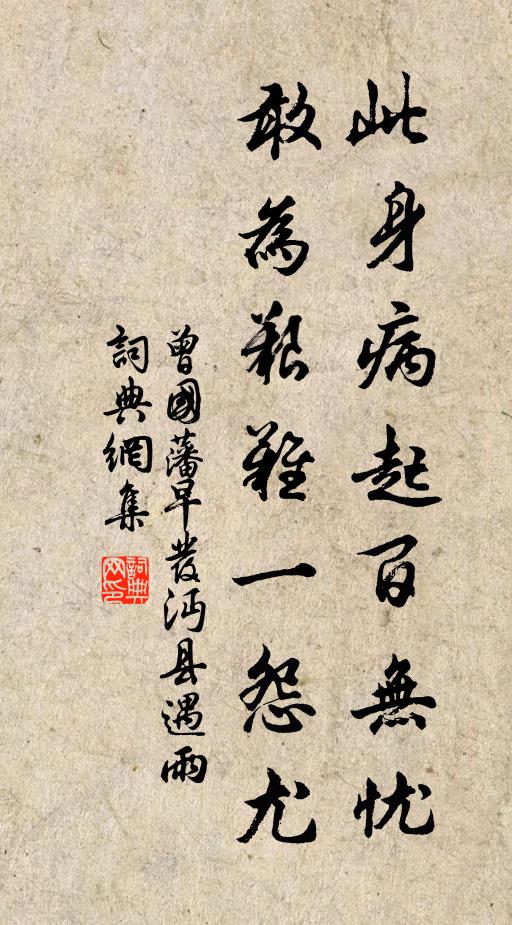 此身病起百無忧
敢為艱難一怨尤
曾國藩早發沔县遇雨
詞典網集
詞典网印